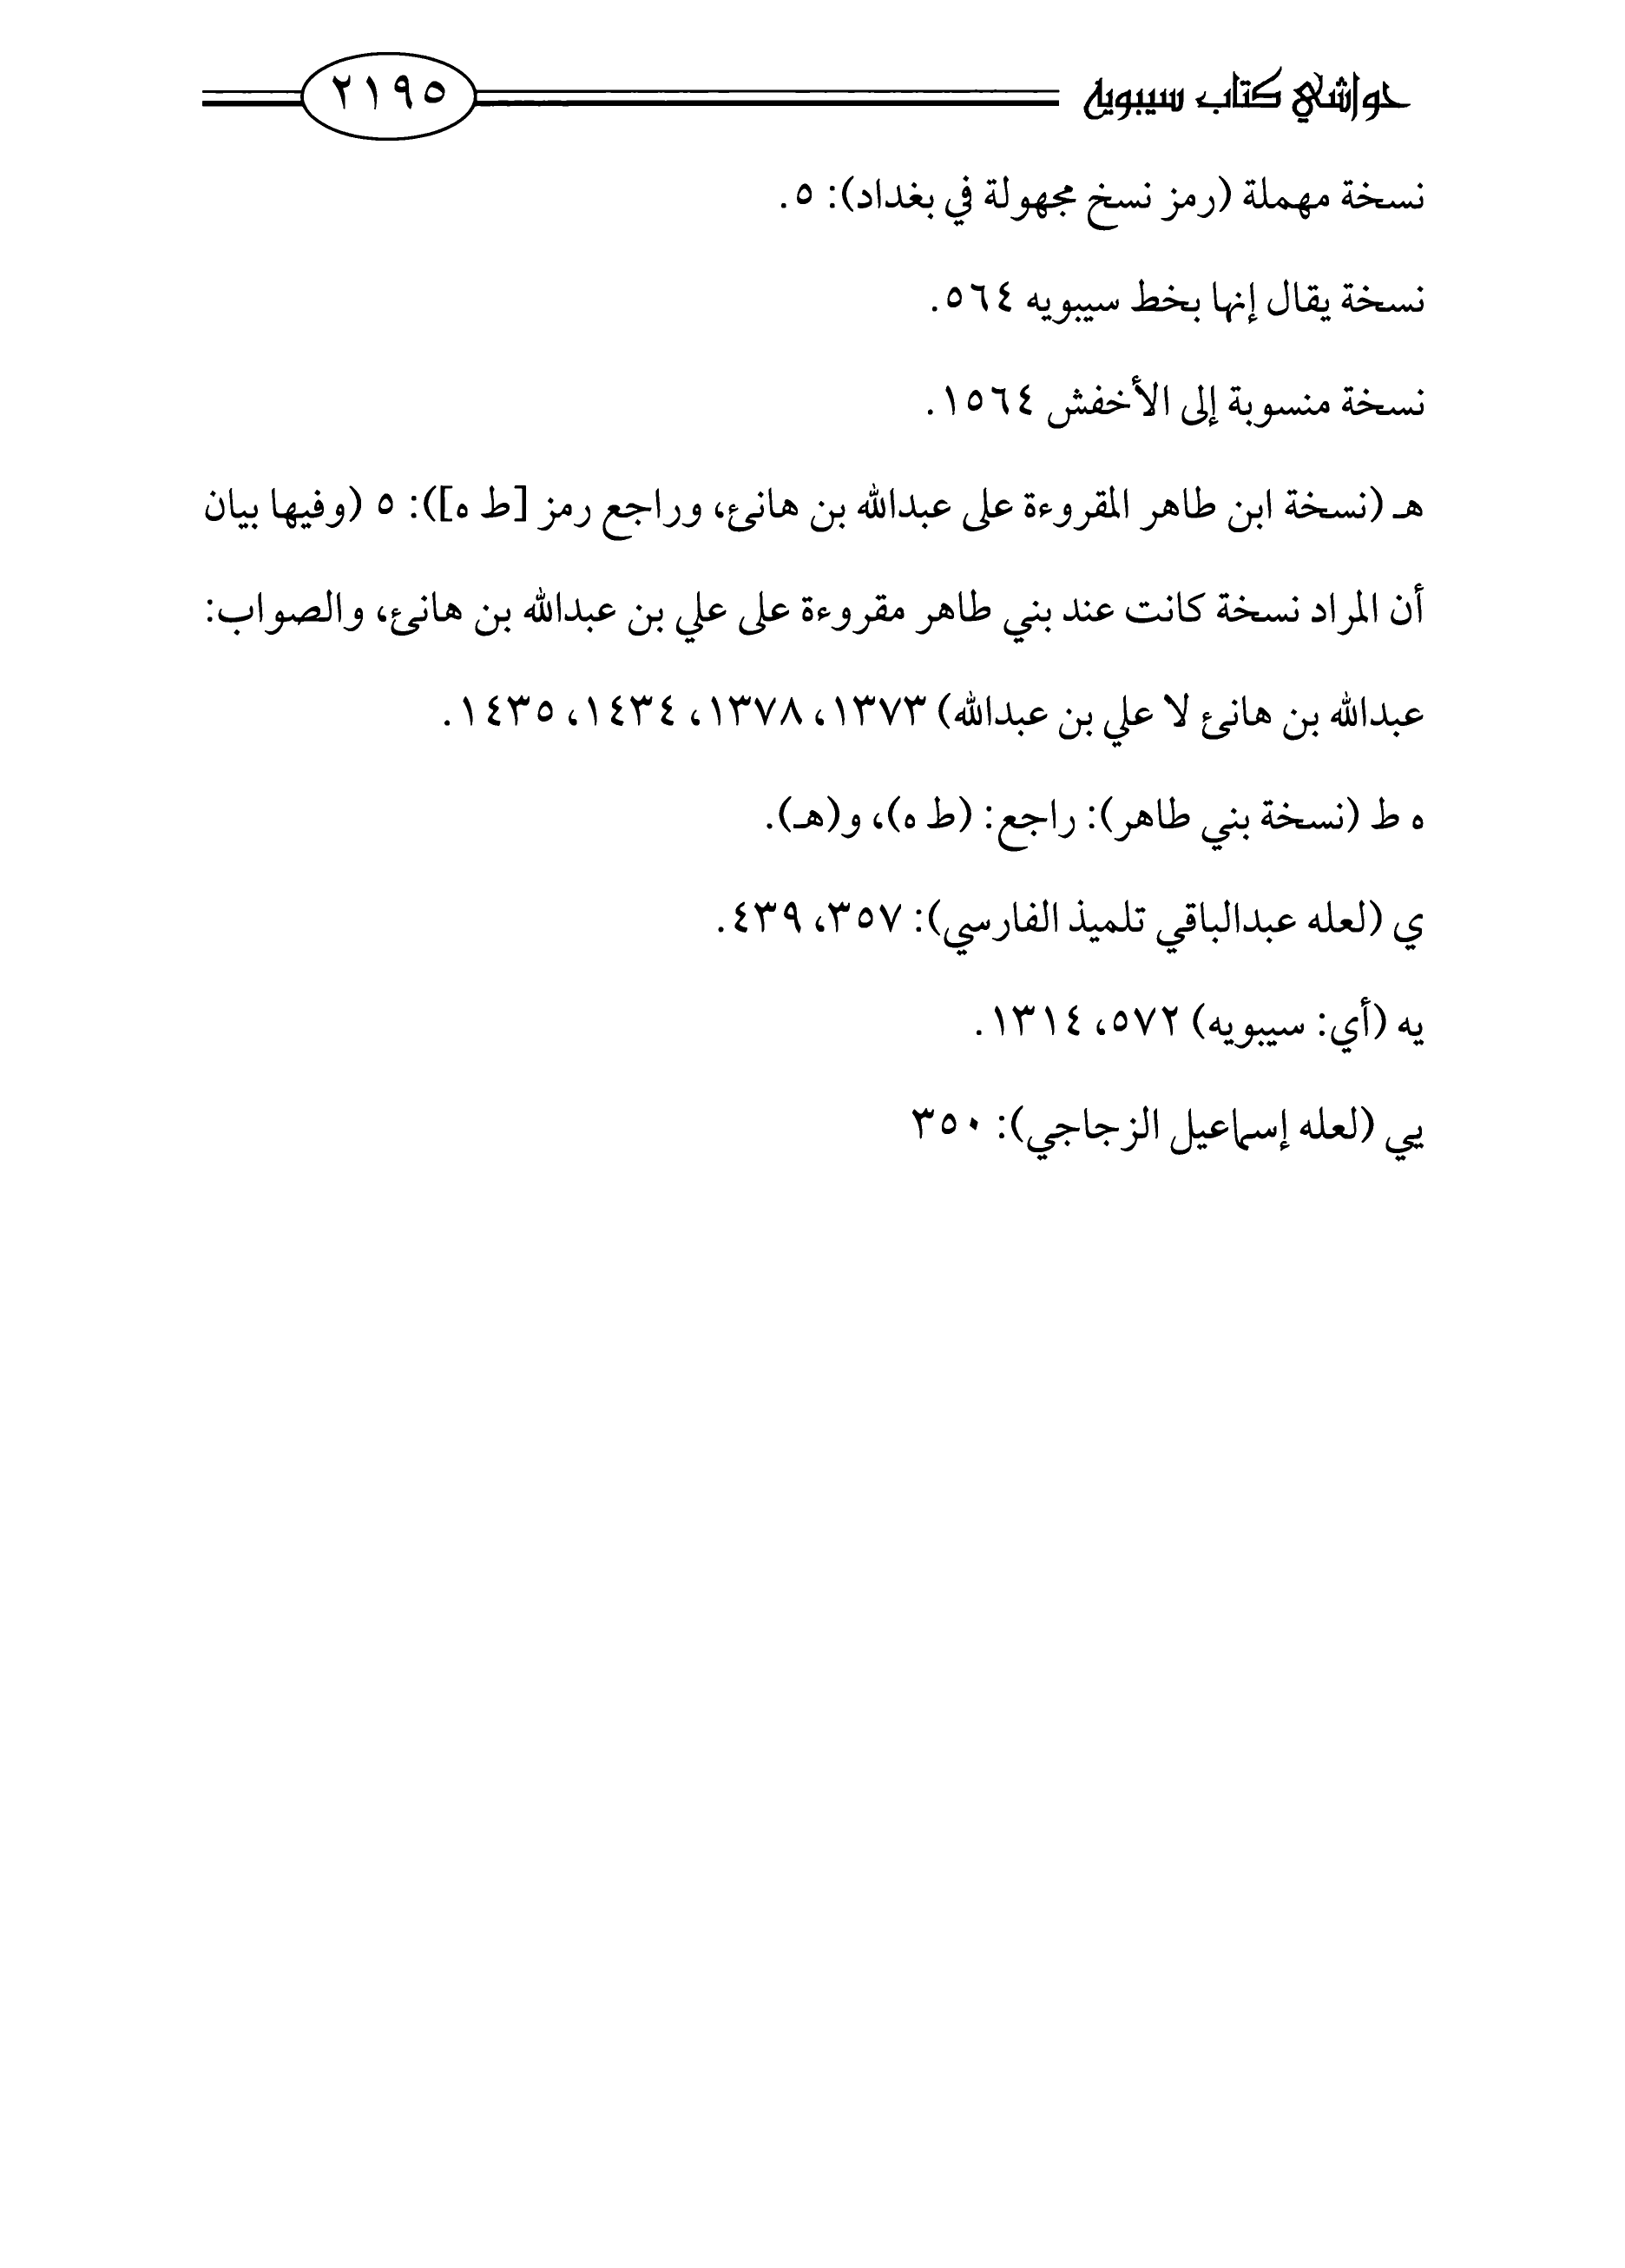 حواشي كتاب سيبويه ٢١٩٥
نسخة مهملة (رمز نسخ مجهولة في بغداد): ٥.
نسخة يقال إنها بخط سيبويه ٥٦٤.
نسخة منسوبة إلى الأخفش ١٥٦٤.
هـ (نسخة ابن طاهر المقروءة على عبدالله بن هانئ، وراجع رمز [ط ه]): ٥ (وفيها بيان
أن المراد نسخة كانت عند بني طاهر مقروءة على علي بن عبدالله بن هانئ، والصواب:
عبدالله بن هانئ لا علي بن عبدالله) ١٣٧٣، ١٣٧٨، ١٤٣٤، ١٤٣٥.
ه ط (نسخة بني طاهر): راجع: (ط ه)، و(هـ).
ي (لعله عبدالباقي تلميذ الفارسي): ٣٥٧، ٤٣٩.
يه (أي: سيبويه) ٥٧٢، ١٣١٤.
يي (لعله إسماعيل الزجاجي): ٣٥٠